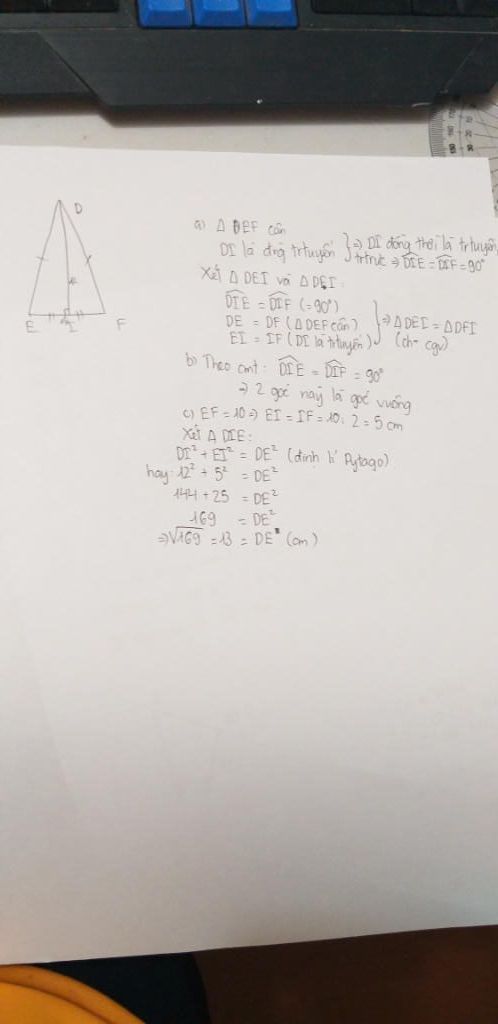 D
E I F
a) Δ DEF cân
DI là đng trtuyến } ⇒ DI đồng thời là trtuyến,
trtrực ⇒ DIE = DIF = 90°
Xét Δ DEI và Δ DFI:
DIE = DIF (= 90°)
DE = DF (ΔDEF cân) } ⇒ ΔDEI = ΔDFI
EI = IF (DI là trtuyến) (ch - cgv)
b) Theo cmt: DIE = DIF = 90°
⇒ 2 góc này là góc vuông
c) EF = 10 ⇒ EI = IF = 10 : 2 = 5 cm
Xét Δ DIE:
DI² + EI² = DE² (định lí Pytago)
hay: 12² + 5² = DE²
144 + 25 = DE²
169 = DE²
⇒ √169 = 13 = DE (cm)